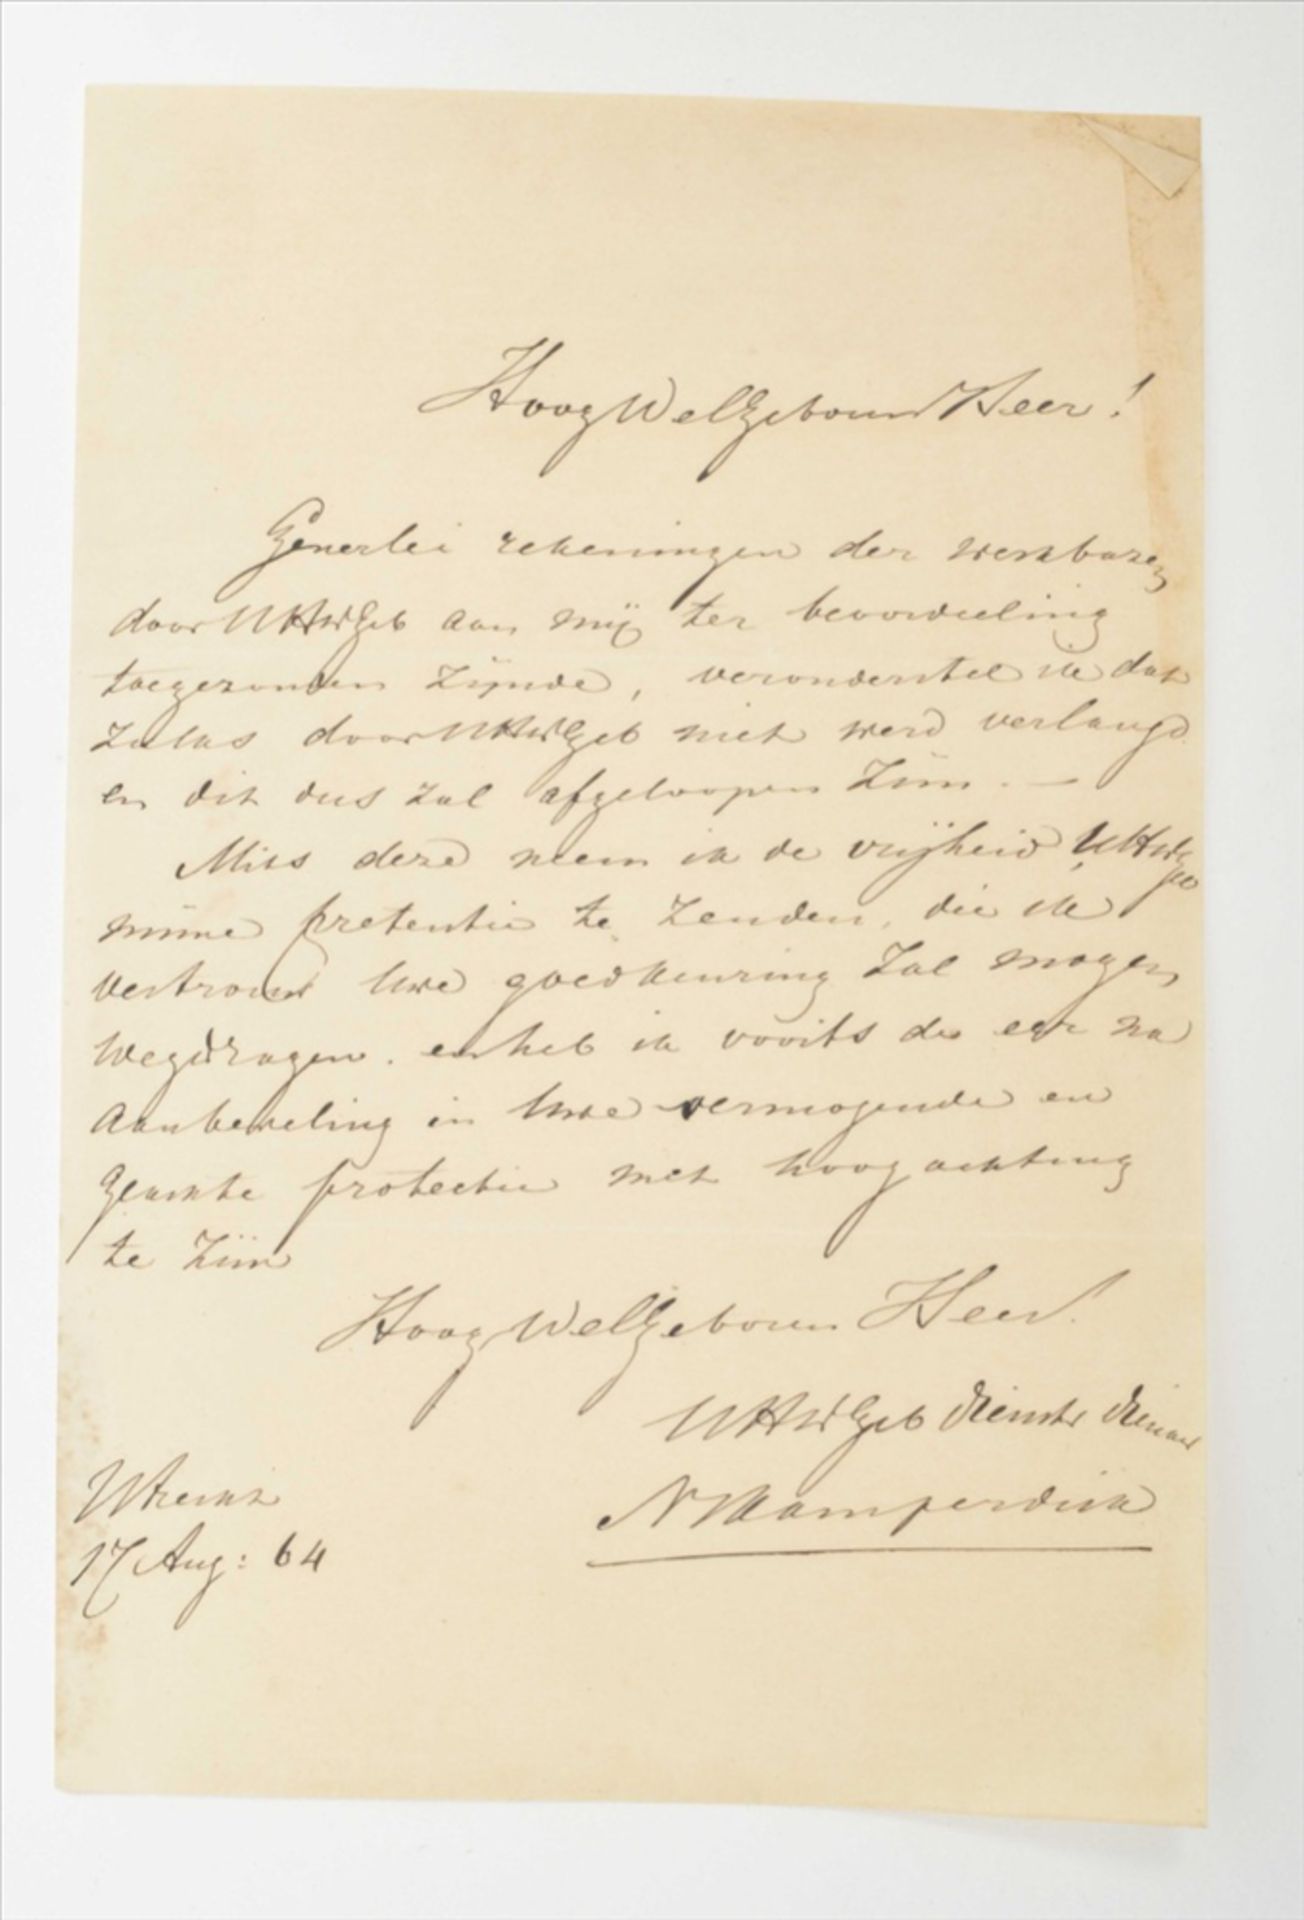 HoogWelGeboren Heer!
Generlei rekeningen der werkbazen
door UHWGeb aan mij ter beoordeeling
toegezonden zijnde, veronderstel ik dat
zulks door UHWGeb niet werd verlangd
en dit dus zal afgeloopen zijn. —
Mits deze neem ik de vrijheid UHWGeb
mijne pretentie te zenden, die ik
vertrouw Uwe goedkeuring zal mogen
wegdragen. en heb ik voorts de eer na
aanbeveling in Uwe vermogende en
geachte protectie met hoogachting
te zijn
HoogWelGeboren Heer!
UHWGeb dienstv dienaar
Utrecht
N Kamperdijk
17 Aug: 64